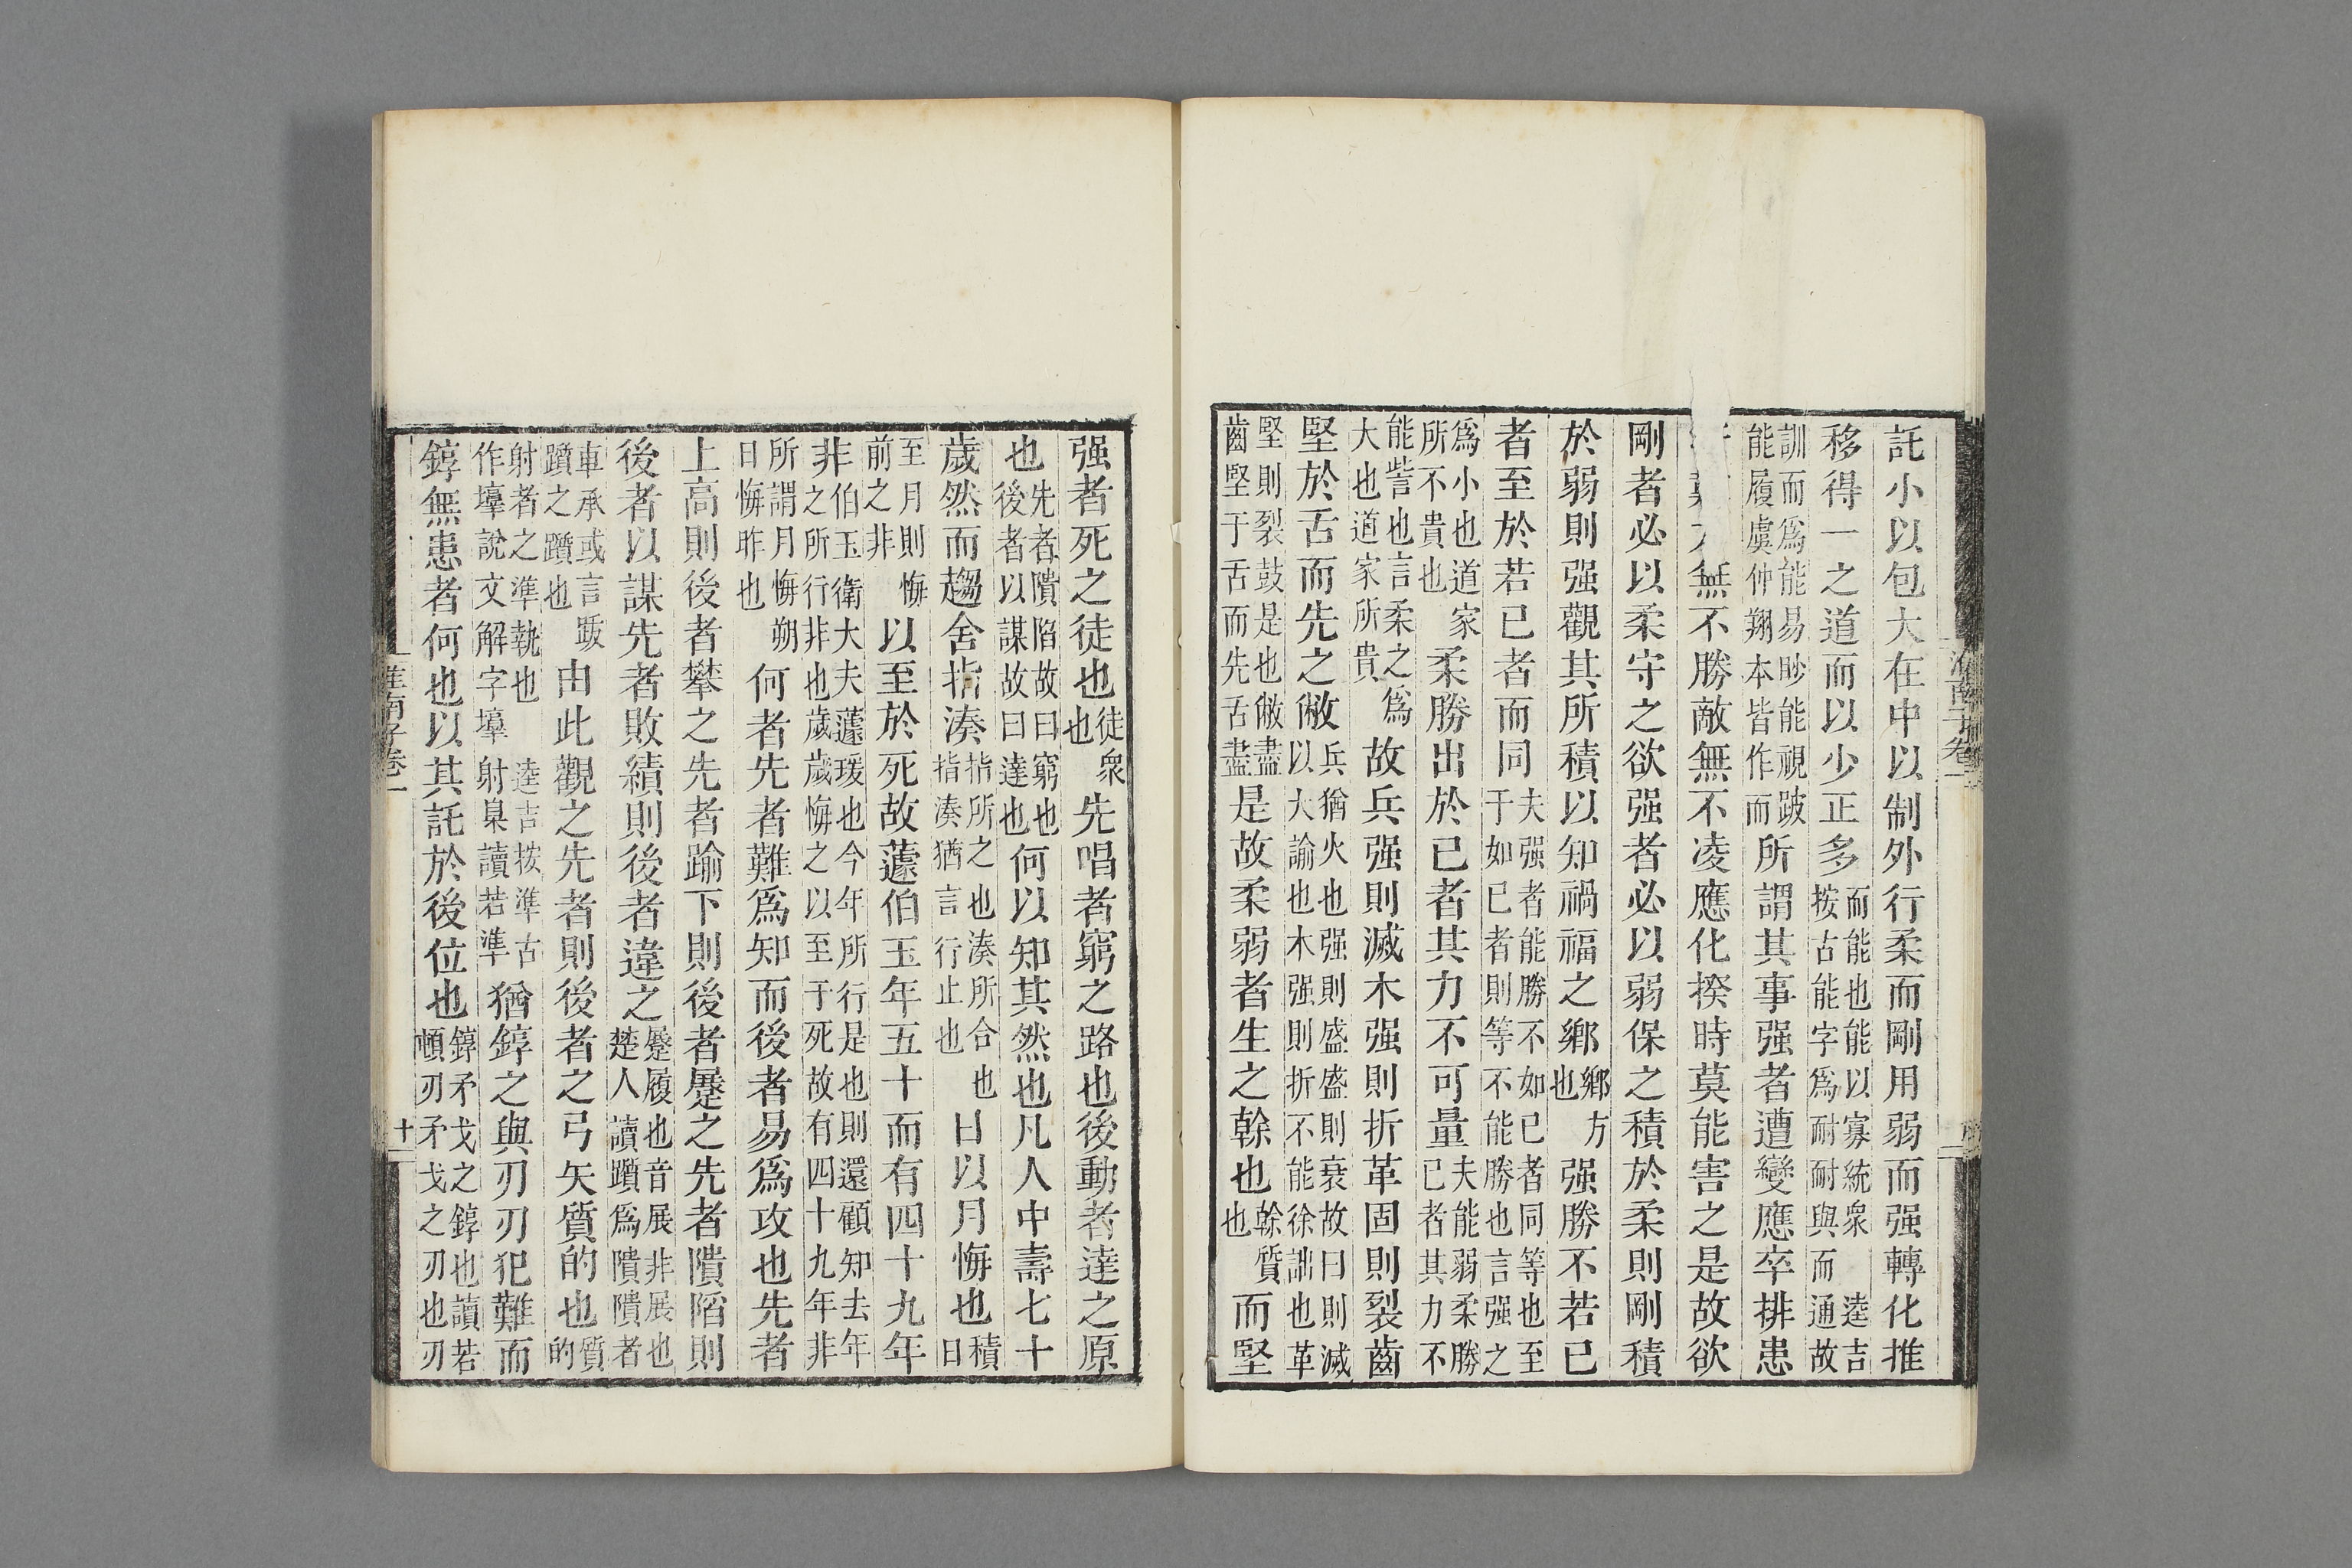 託小以包大在中以制外行柔而剛用弱而强轉化推
移得一之道而以少正多而能也能以寡統衆逵吉按古能字爲耐耐與而通故
訓而爲能易眇能視跛能履虞仲翔本皆作而所謂其事强者遭變應卒排患
無不勝敵無不凌應化揆時莫能害之是故欲
剛者必以柔守之欲强者必以弱保之積於柔則剛積
於弱則强觀其所積以知禍福之鄉鄉方也强勝不若已
者至於若已者而同夫强者能勝不如已者同等也至于如已者則等不能勝也言强之
爲小也道家所不貴也柔勝出於已者其力不可量夫能弱柔勝已者其力不
能訾也言柔之爲大也道家所貴故兵强則滅木强則折革固則裂齒
堅於舌而先之敝兵猶火也强則盛盛則衰故曰則滅以大諭也木强則折不能徐詘也革
堅則裂鼓是也敝盡齒堅于舌而先舌盡是故柔弱者生之榦也榦質也而堅
强者死之徒也徒衆也先唱者窮之路也後動者達之原
也先者隤陷故曰窮也後者以謀故曰達也何以知其然也凡人中壽七十
歲然而趨舍指湊指所之也湊所合也指湊猶言行止也日以月悔也積日
至月則悔前之非以至於死故蘧伯玉年五十而有四十九年
非伯玉衛大夫蘧瑗也今年所行是也則還顧知去年之所行非也歲歲悔之以至于死故有四十九年非
所謂月悔朔日悔昨也何者先者難爲知而後者易爲攻也先者
上高則後者攀之先者踰下則後者蹷之先者隤陷則
後者以謀先者敗績則後者違之蹷履也音展非展也楚人讀躓爲隤隤者
車承或言跋躓之躓也由此觀之先者則後者之弓矢質的也質的
射者之準執也逵吉按準古作壿說文解字壿射臬讀若準猶錞之與刃刃犯難而
錞無患者何也以其託於後位也錞矛戈之錞也讀若頓刃矛戈之刃也刃
淮南子卷一
十一